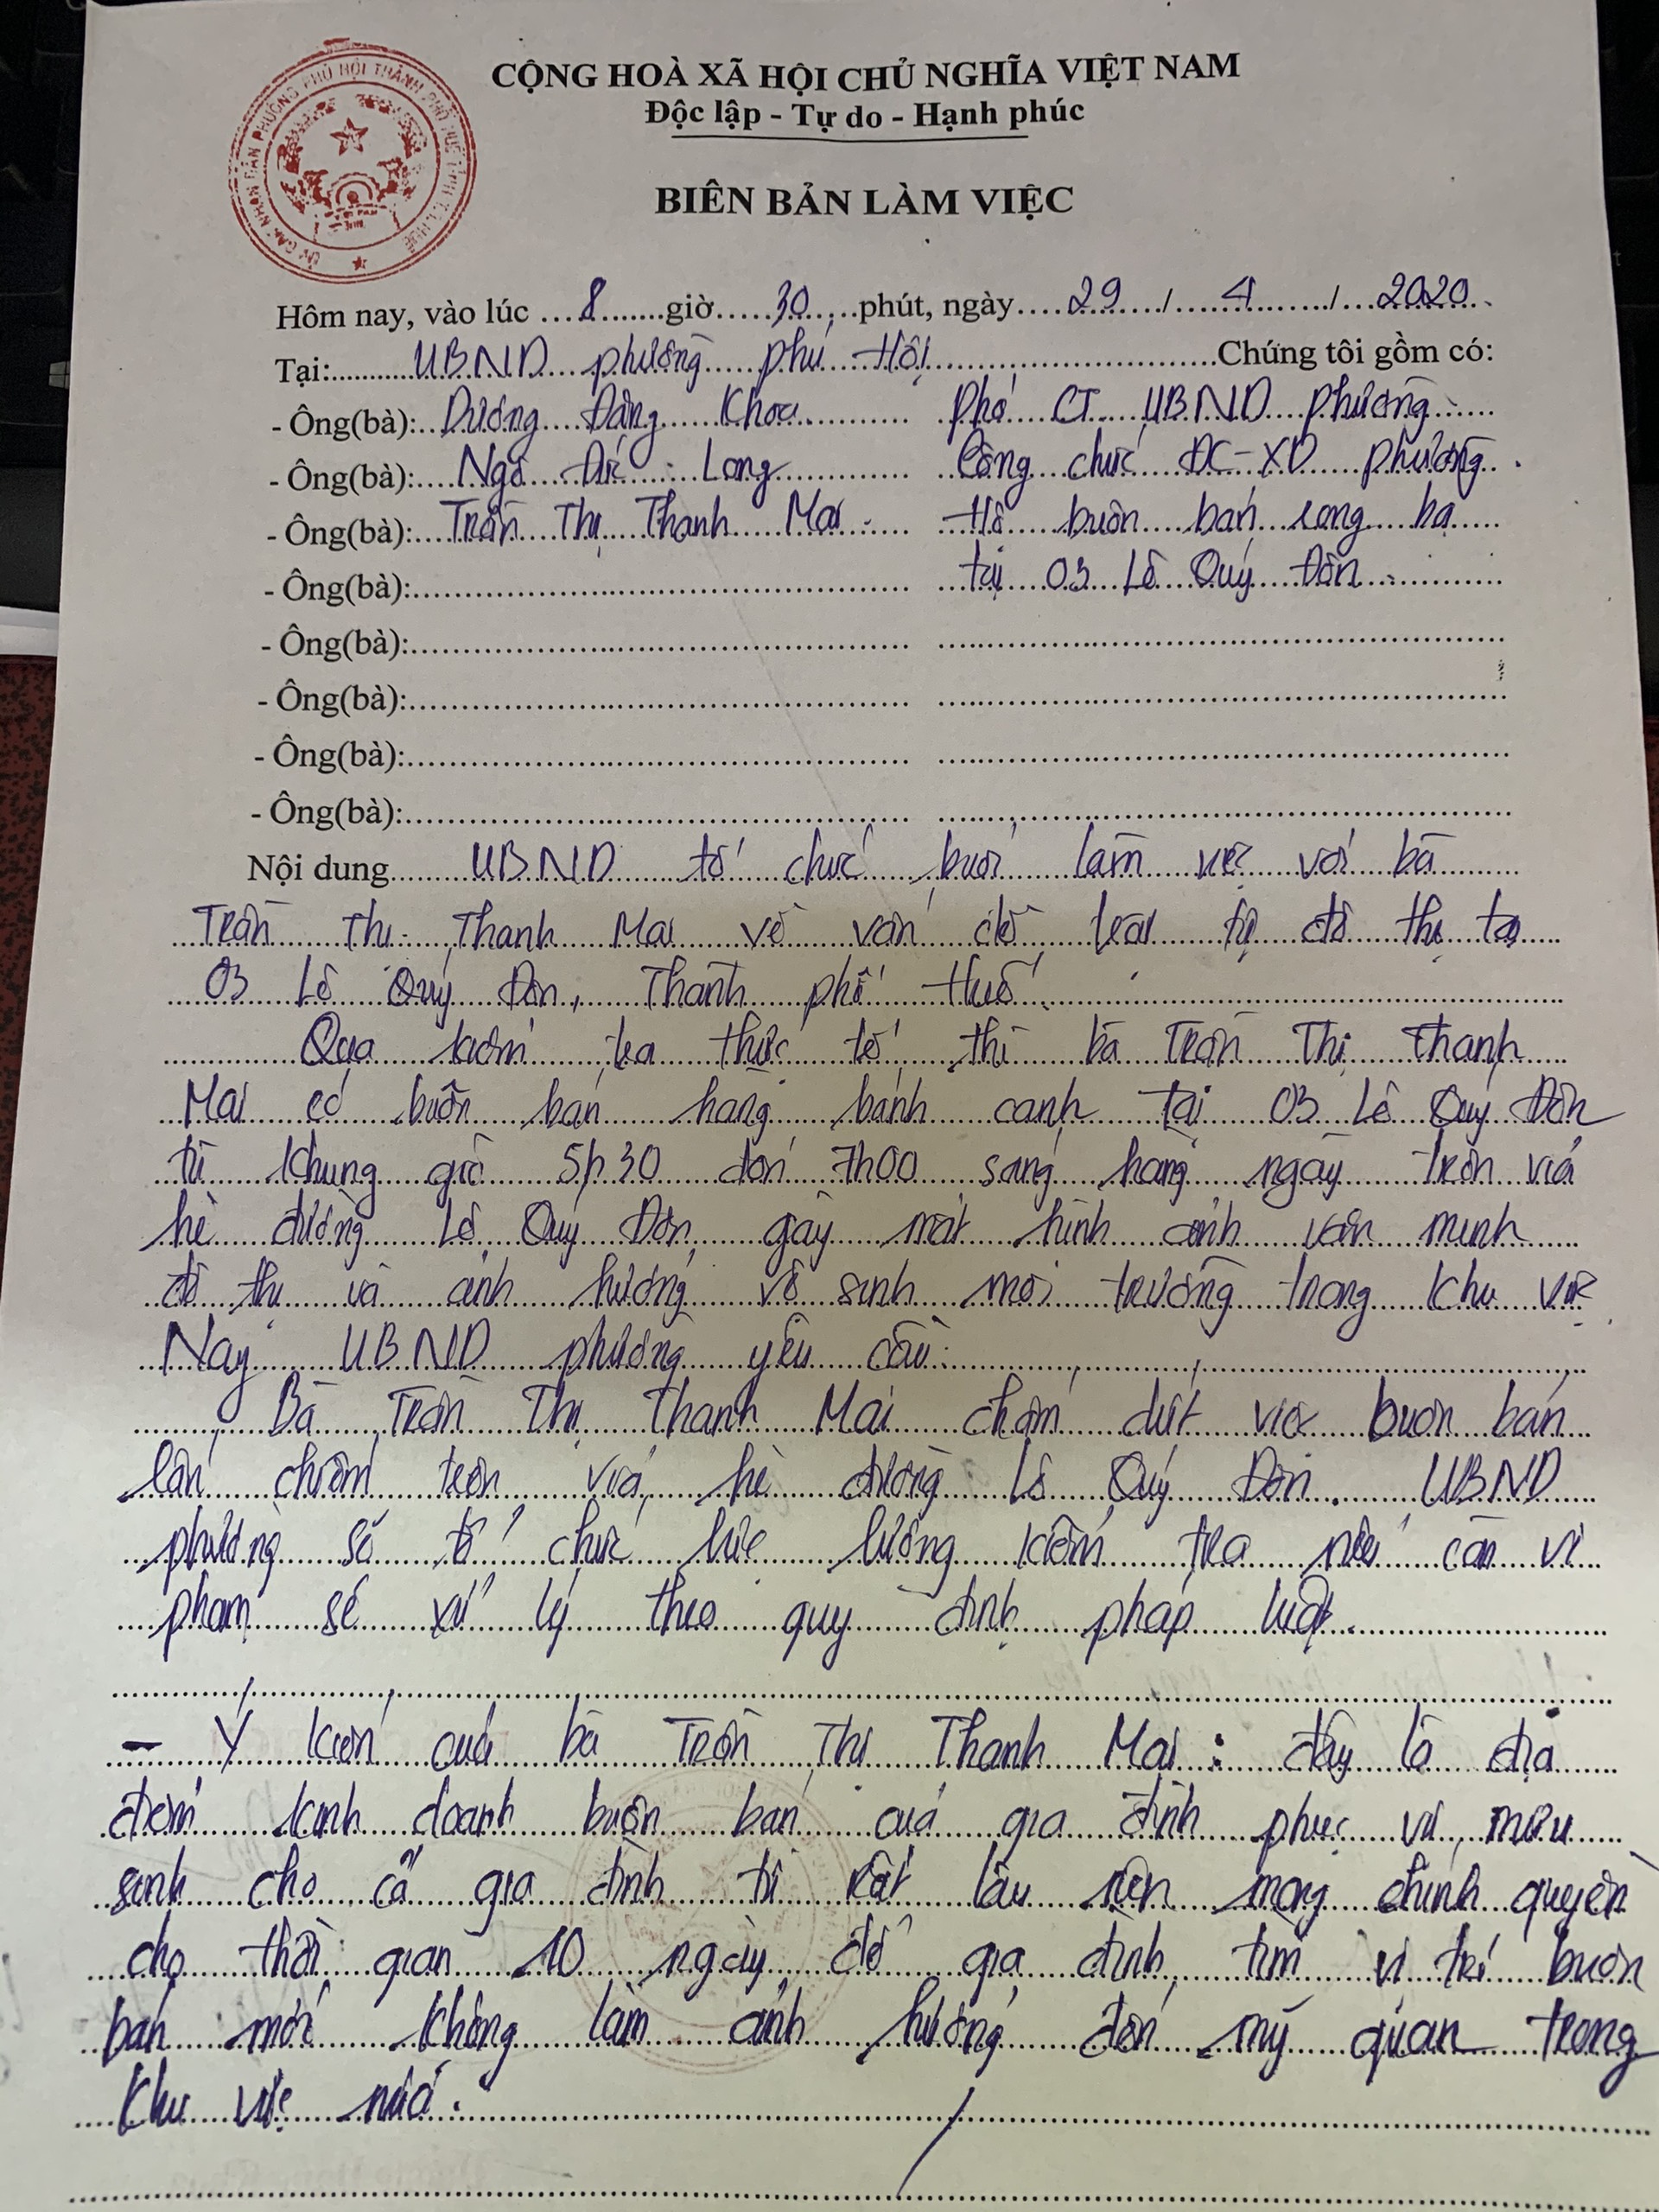 CỘNG HOÀ XÃ HỘI CHỦ NGHĨA VIỆT NAM
Độc lập - Tự do - Hạnh phúc
ỦY BAN NHÂN DÂN PHƯỜNG PHÚ HỘI THÀNH PHỐ HUẾ
BIÊN BẢN LÀM VIỆC
Hôm nay, vào lúc ...8.......giờ.....30....phút, ngày....29..../....4......./....2020..
Tại:..........UBND phường phú Hội..............................Chứng tôi gồm có:
- Ông(bà):..Dương Đăng Khoa............ Phó CT UBND phường.....
- Ông(bà):....Ngô Đức Long............ Công chức ĐC-XD phường..
- Ông(bà):....Trần Thị Thanh Mai...... Hộ buôn bán song bạ.....
- Ông(bà):............................................................ tại 03 Lê Quý Đôn...............
- Ông(bà):............................................................ ............................................................
- Ông(bà):............................................................ ............................................................
- Ông(bà):............................................................ ............................................................
- Ông(bà):............................................................ ............................................................
Nội dung..........UBND tổ chức buổi làm việc với bà
Trần Thị Thanh Mai về vấn đề trật tự đô thị tại
03 Lê Quý Đôn, Thành phố Huế.
Qua kiểm tra thực tế, thì bà Trần Thị Thanh
Mai có buôn bán hàng bánh canh tại 03 Lê Quý Đôn
từ khung giờ 5h30 đến 7h00 sáng hàng ngày trên vỉa
hè đường Lê Quý Đôn, gây mất hình ảnh văn minh
đô thị và ảnh hưởng vệ sinh môi trường trong khu vực
Nay UBND phường yêu cầu:
Bà Trần Thị Thanh Mai chấm dứt việc buôn bán
lấn chiếm trên vỉa hè đường Lê Quý Đôn. UBND
phường sẽ tổ chức lực lượng kiểm tra nếu còn vi
phạm sẽ xử lý theo quy định pháp luật.
- Ý kiến của bà Trần Thị Thanh Mai: đây là địa
điểm kinh doanh buôn bán của gia đình phục vụ mưu
sinh cho cả gia đình từ rất lâu nên mong chính quyền
cho thời gian 10 ngày để gia đình tìm vị trí buôn
bán mới không làm ảnh hưởng đến mỹ quan trong
khu vực nữa.